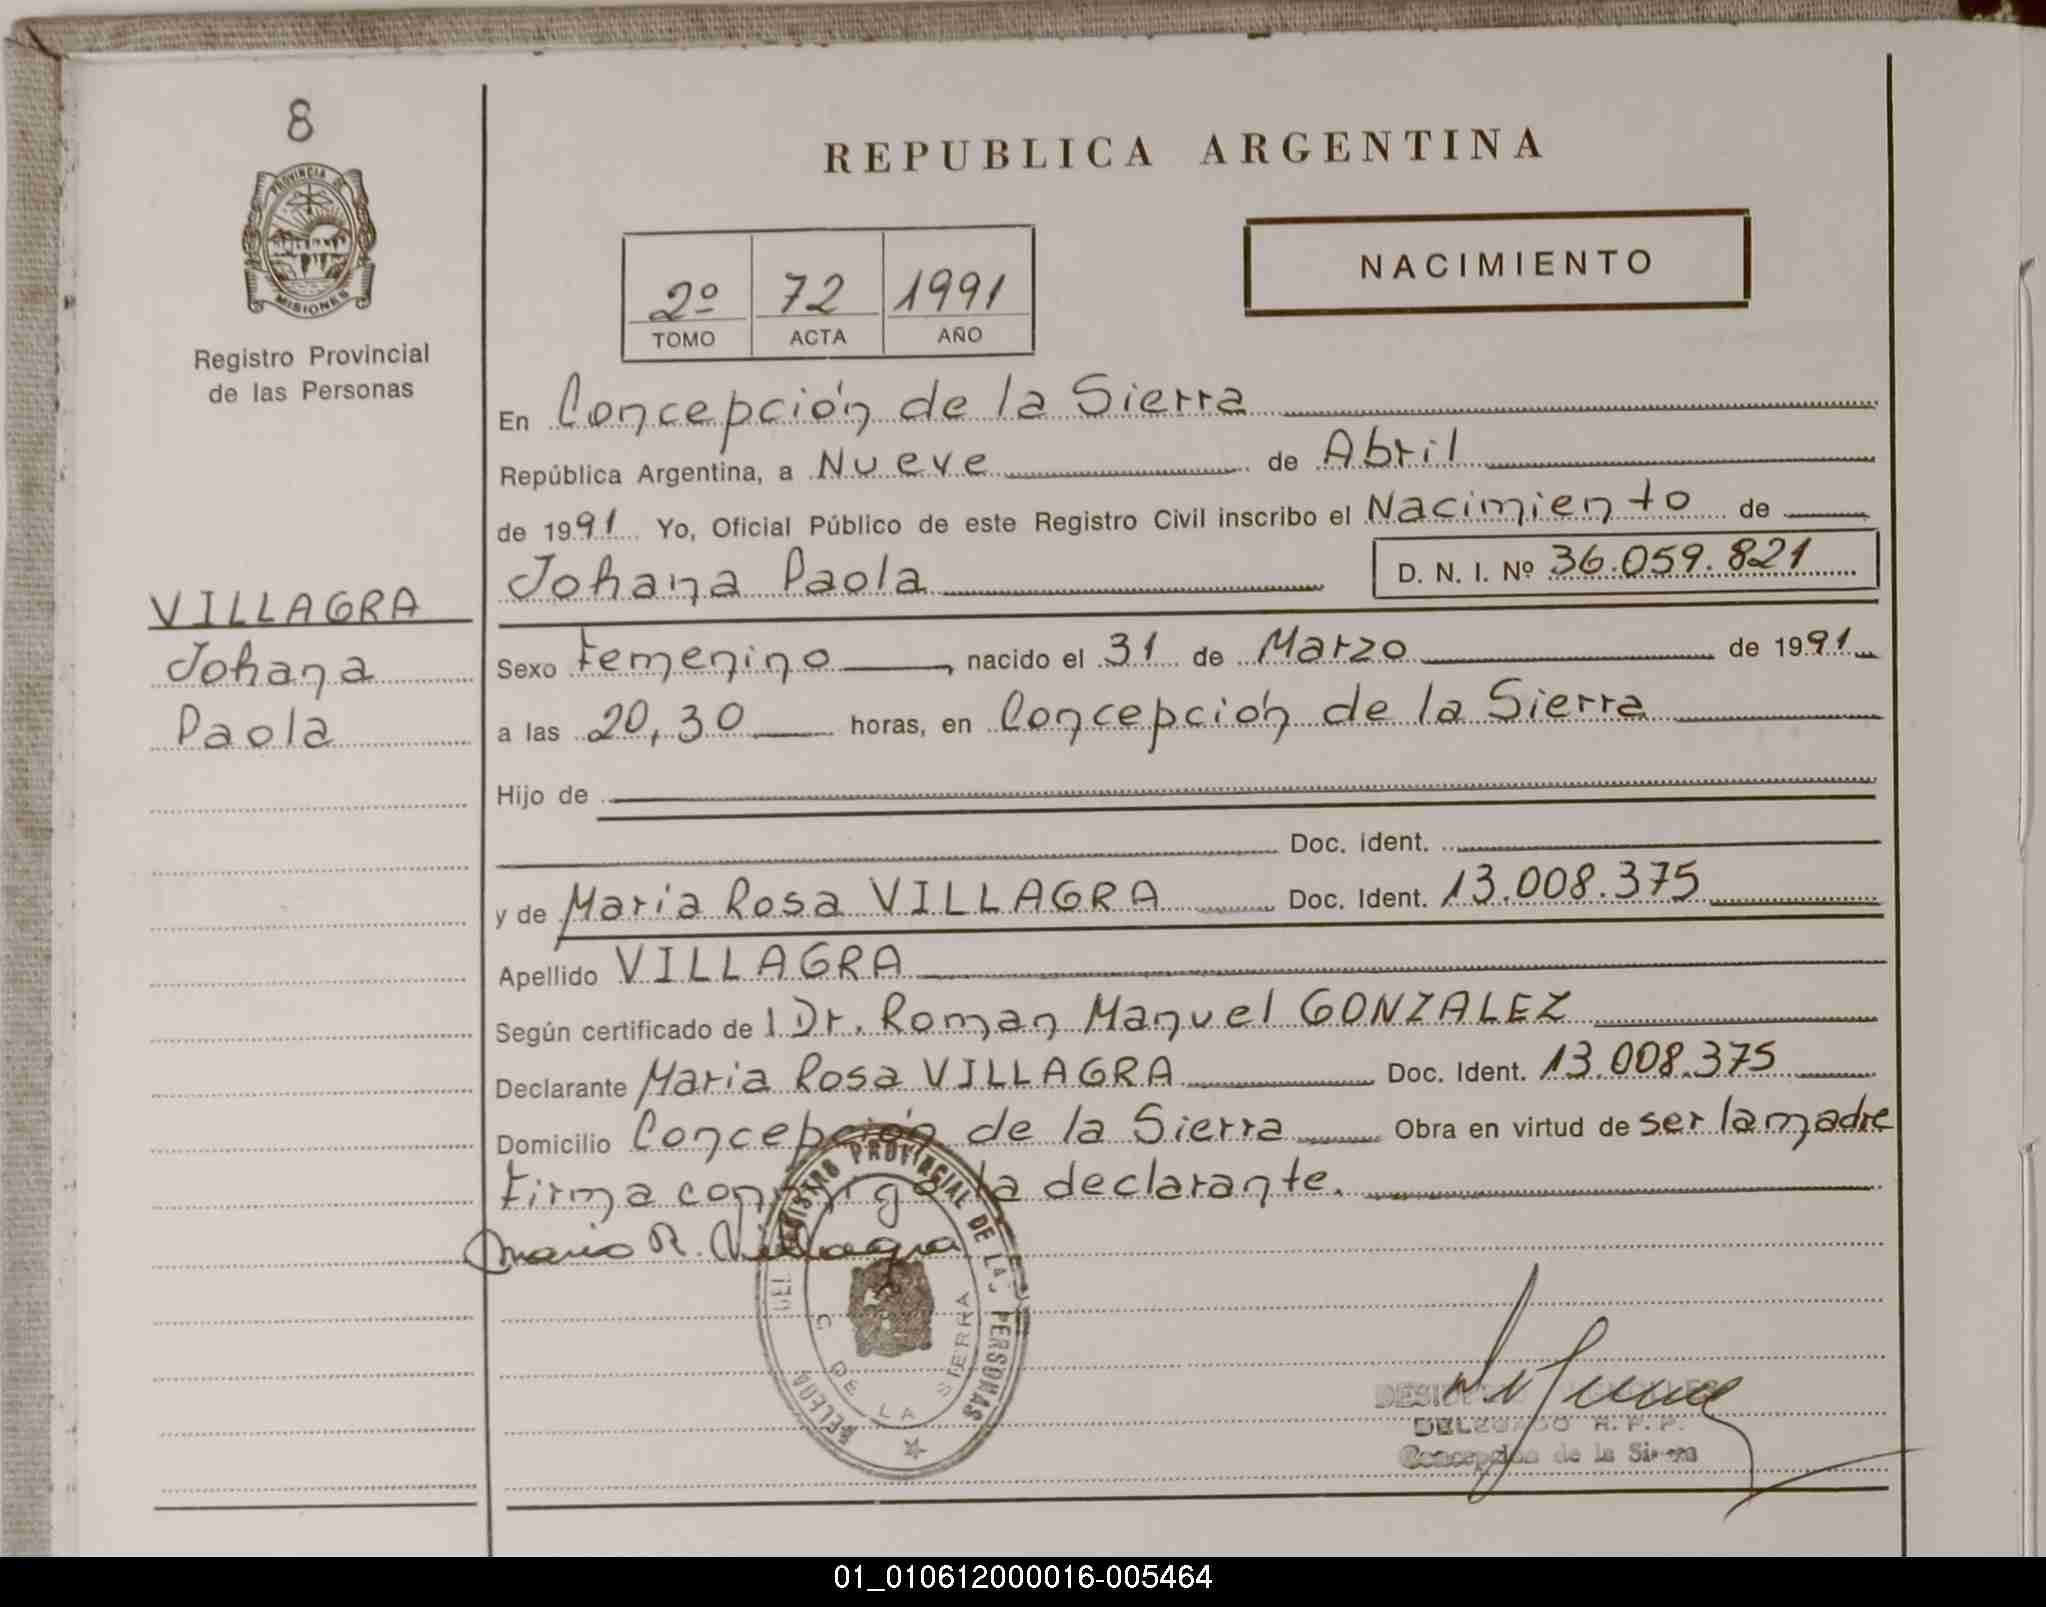 8
PROVINCIA DE
MISIONES
Registro Provincial
de las Personas
VILLAGRA
Johana
Paola
REPUBLICA ARGENTINA
2º 72 1991
TOMO ACTA AÑO
NACIMIENTO
En Concepción de la Sierra
República Argentina, a Nueve de Abril
de 1991 Yo, Oficial Público de este Registro Civil inscribo el Nacimiento de
Johana Paola D. N. I. Nº 36.059.821
Sexo Femenino, nacido el 31 de Marzo de 1991
a las 20,30 horas, en Concepción de la Sierra
Hijo de
Doc. Ident.
y de Maria Rosa VILLAGRA Doc. Ident. 13.008.375
Apellido VILLAGRA
Según certificado de l Dr. Roman Manuel GONZALEZ
Declarante Maria Rosa VILLAGRA Doc. Ident. 13.008.375
Domicilio Concepción de la Sierra Obra en virtud de ser la madre
Firma conmigo la declarante.
Maria R. Villagra
REGISTRO PROVINCIAL DE LAS PERSONAS
C DE LA SIERRA
DELEGADO R. P. P.
Concepción de la Sierra
01_010612000016-005464